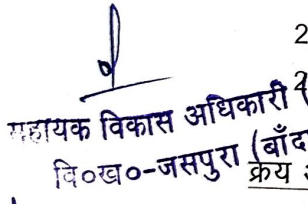 2
सहायक विकास अधिकारी (
2
वि०ख०-जसपुरा (बाँद
क्रय